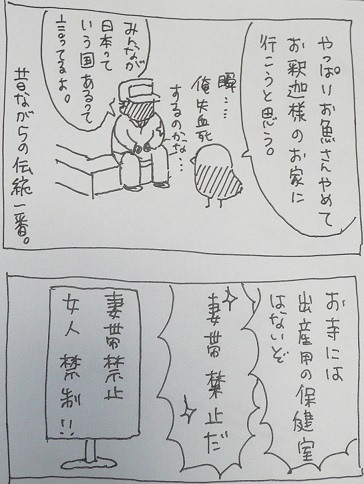 やっぱりお魚さんやめて
お釈迦様のお家に
行こうと思う。
瞬……
俺失血死
するのかな…
みんなが
日本って
いう国あるって
言ってるよ。
昔ながらの伝統一番。
お寺には
出産用の保健室
はないぞ
妻帯禁止だ
妻帯禁止
女人禁制!!